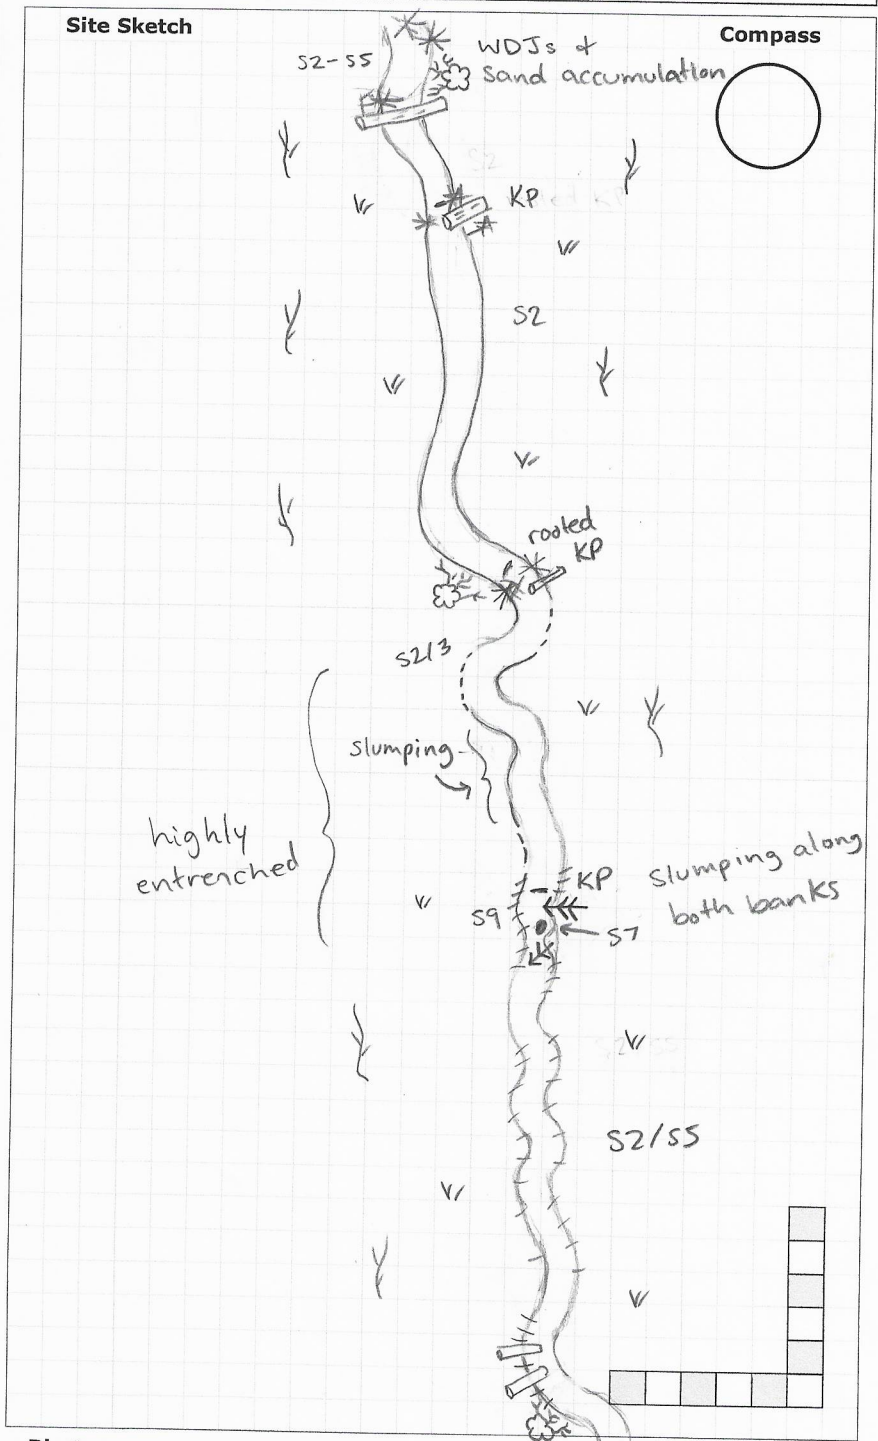 Site Sketch
Compass
S2-S5
WDJs &
Sand accumulation
KP
S2
rooted
KP
S2/3
slumping
highly
entrenched
KP
Slumping along
both banks
S9
S7
S2/S5